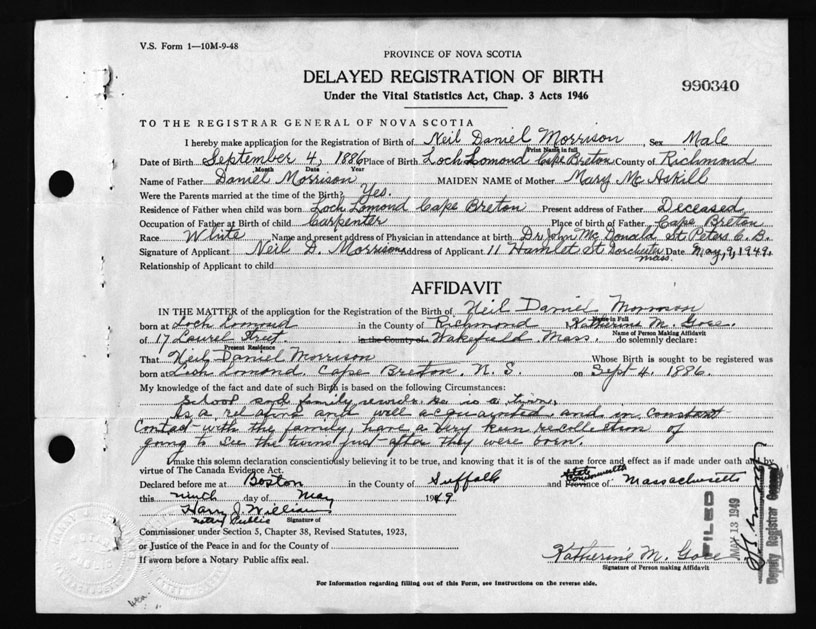 V.S. Form 1—10M-9-48
PROVINCE OF NOVA SCOTIA
DELAYED REGISTRATION OF BIRTH
990340
Under the Vital Statistics Act, Chap. 3 Acts 1946
TO THE REGISTRAR GENERAL OF NOVA SCOTIA
I hereby make application for the Registration of Birth of Neil Daniel Morrison, Sex Male
Print Name in full
Date of Birth September 4, 1886 Place of Birth Loch Lomond Cape Breton County of Richmond
Month Date Year
Name of Father Daniel Morrison MAIDEN NAME of Mother Mary Mc Askill
Were the Parents married at the time of the Birth? Yes.
Residence of Father when child was born Loch Lomond Cape Breton Present address of Father Deceased
Occupation of Father at Birth of child Carpenter Place of birth of Father Cape Breton
Race White Name and present address of Physician in attendance at birth Dr John Mc Donald St Peters C.B.
Signature of Applicant Neil D. Morrison Address of Applicant 11 Hamlet St Dorchester Mass. Date May, 9, 1949.
Relationship of Applicant to child
AFFIDAVIT
IN THE MATTER of the application for the Registration of the Birth of Neil Daniel Morrison
Name in Full
born at Loch Lomond in the County of Richmond Katherine M. Goee.
Name of Person making Affidavit
of 17 Laurel Street. in the County of Wakefield Mass. do solemnly declare:
Present Residence
That Neil Daniel Morrison Whose Birth is sought to be registered was
born at Loch Lomond, Cape Breton, N.S. on Sept 4. 1886.
My knowledge of the fact and date of such Birth is based on the following Circumstances:
School and family records. He is a twin.
As a relative and well acquainted and in constant
Contact with the family, have a very keen recollection of
going to see the twins just after they were born.
I make this solemn declaration conscientiously believing it to be true, and knowing that it is of the same force and effect as if made under oath and by
virtue of The Canada Evidence Act.
Declared before me at Boston in the County of Suffolk and State Commonwealth Province of Massachusetts
this ninth day of May 1949
Harry J. William
Notary Public Signature of
Commissioner under Section 5, Chapter 38, Revised Statutes, 1923,
or Justice of the Peace in and for the County of
If sworn before a Notary Public affix seal.
Katherine M. Goee
Signature of Person making Affidavit
FILED
MAY 13 1949
Deputy Registrar General
For Information regarding filling out of this Form, see Instructions on the reverse side.